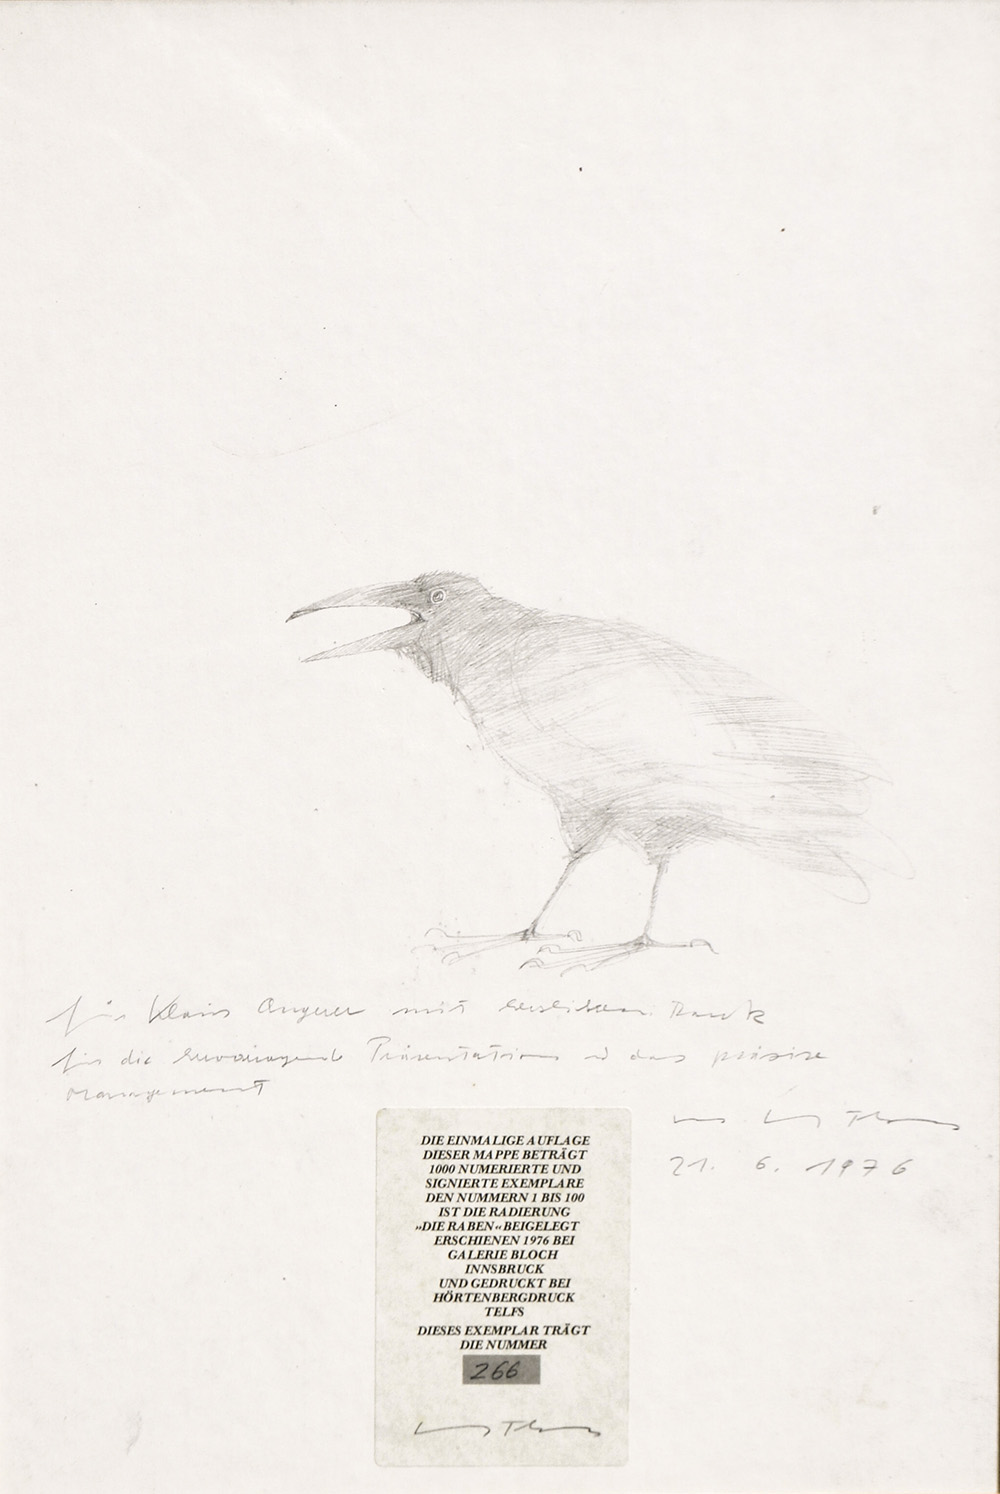 für Klaus Angerer mit herzlichem Dank
für die hervorragende Präsentation u das präzise
Management
21. 6. 1976
DIE EINMALIGE AUFLAGE
DIESER MAPPE BETRÄGT
1000 NUMERIERTE UND
SIGNIERTE EXEMPLARE
DEN NUMMERN 1 BIS 100
IST DIE RADIERUNG
»DIE RABEN« BEIGELEGT
ERSCHIENEN 1976 BEI
GALERIE BLOCH
INNSBRUCK
UND GEDRUCKT BEI
HÖRTENBERGDRUCK
TELFS
DIESES EXEMPLAR TRÄGT
DIE NUMMER
266